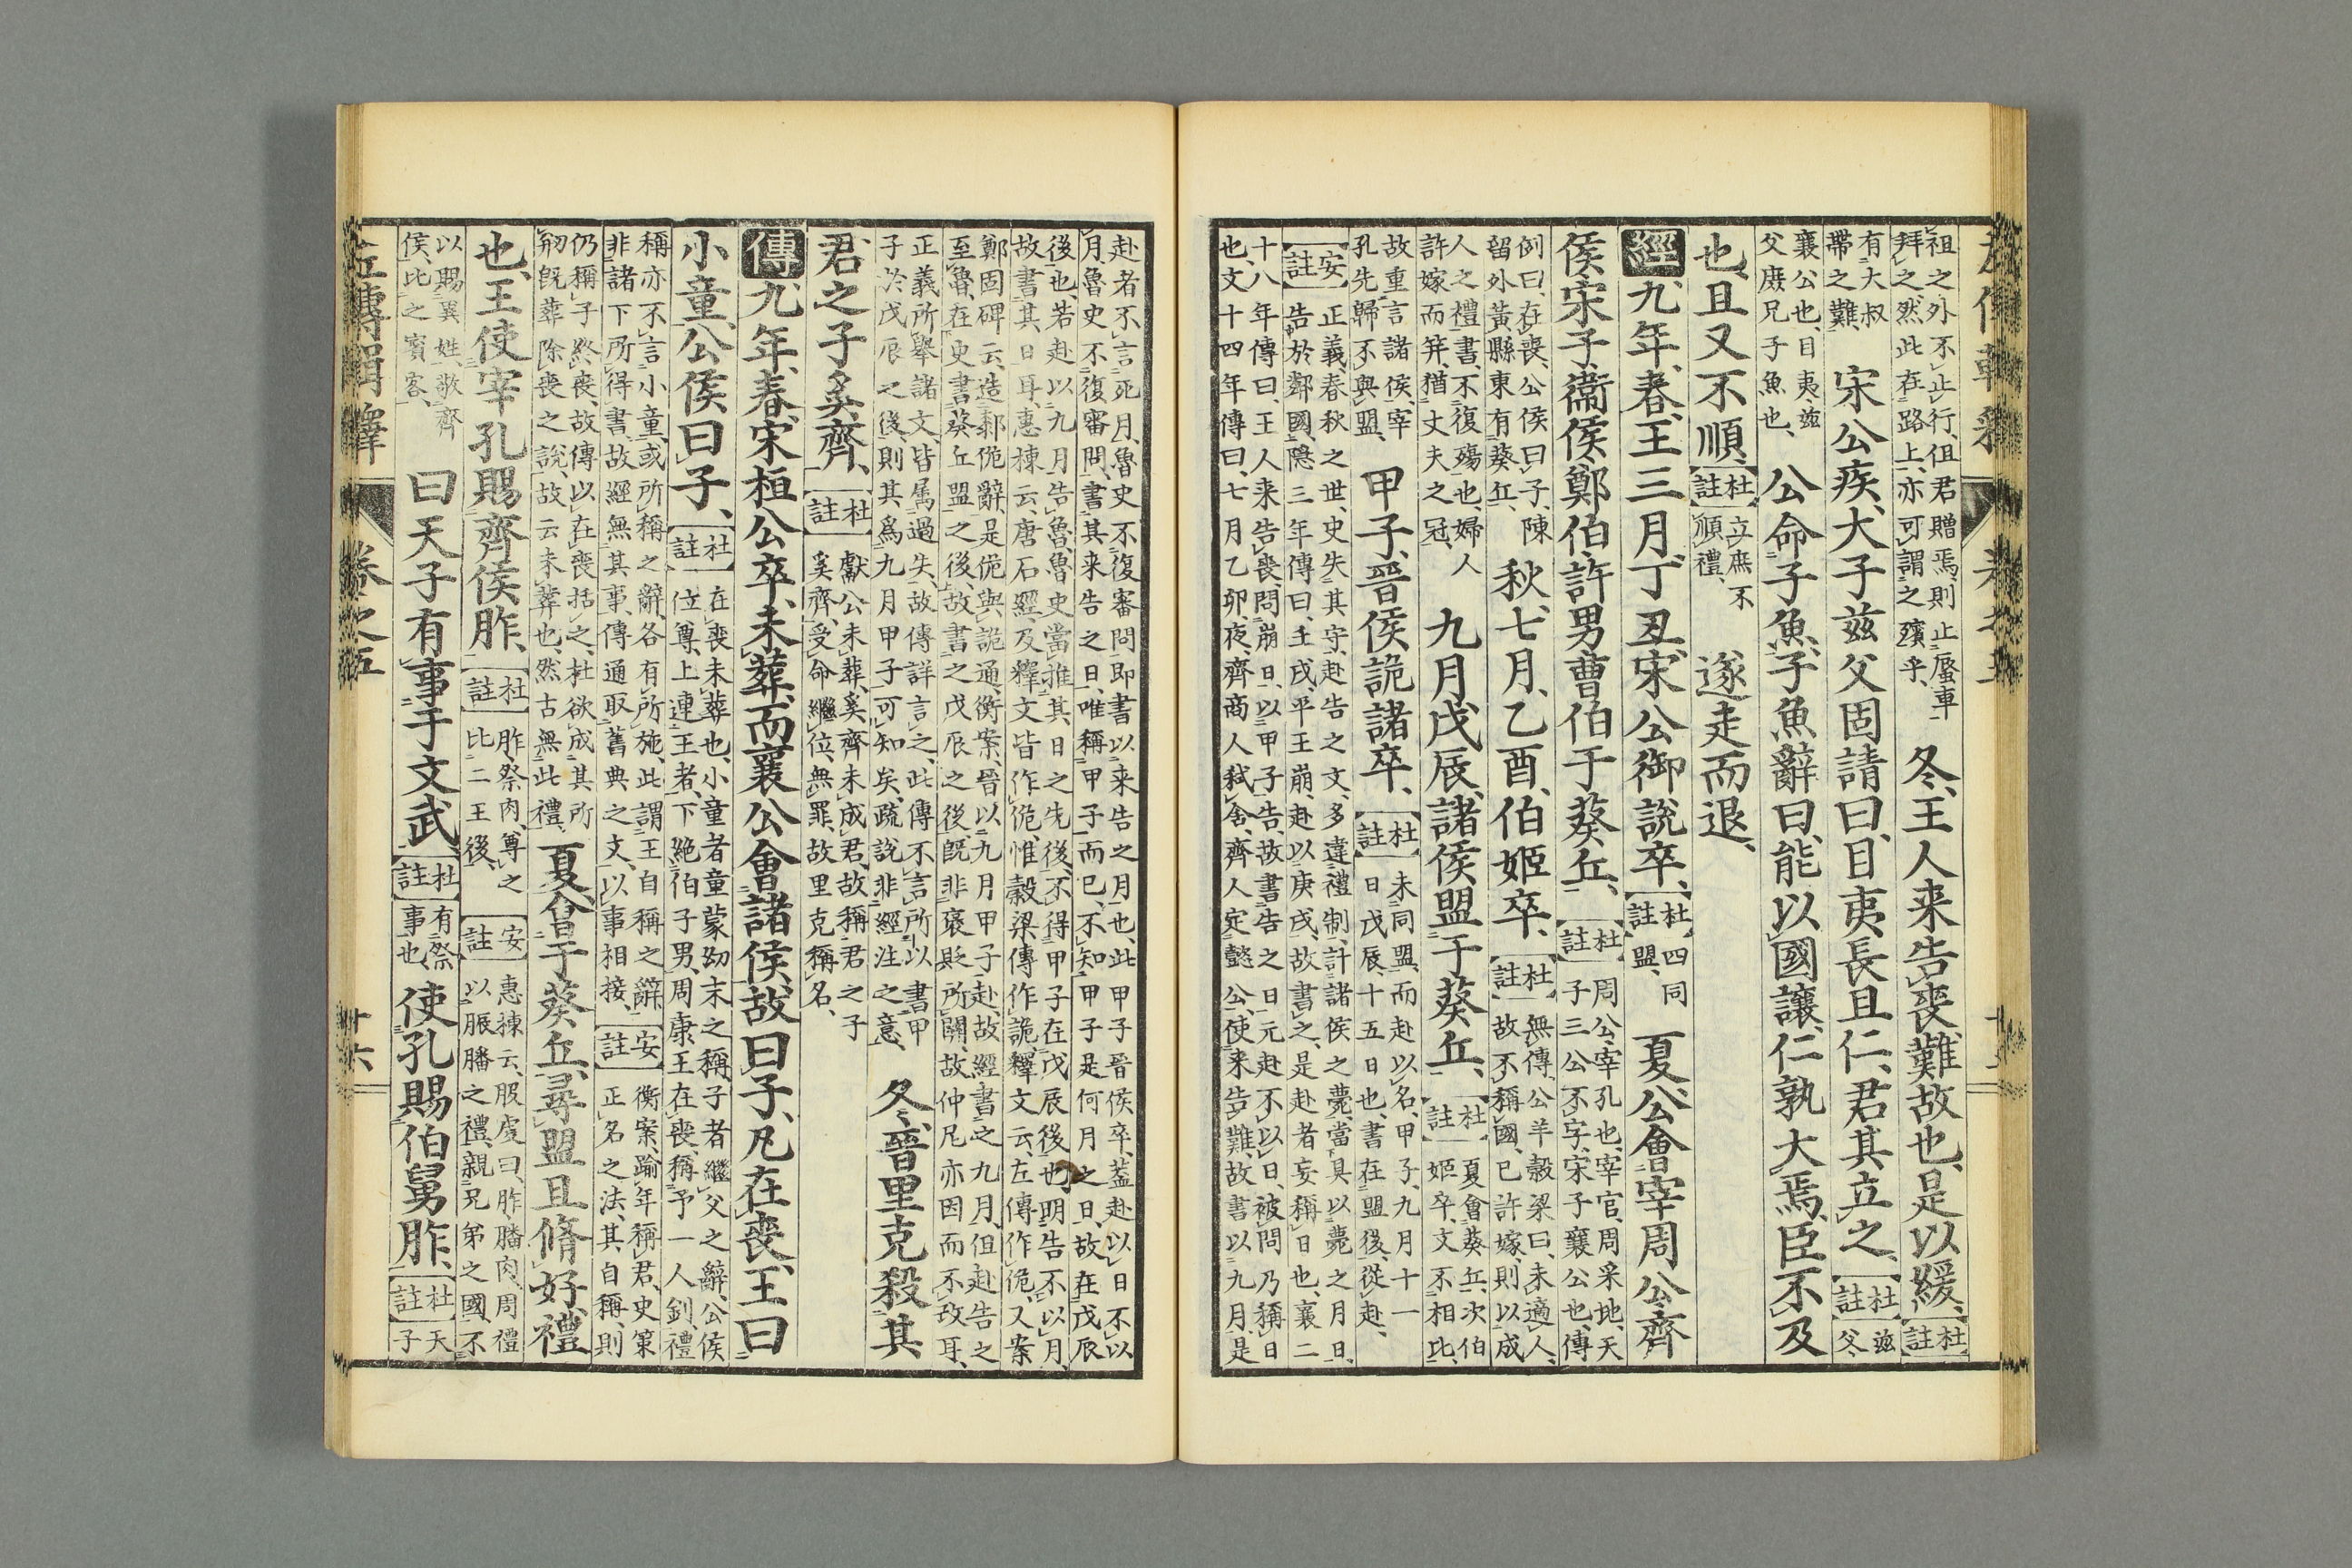 祖之外不止行但君贈焉則止蜃車
拜之然此在路上亦可謂之殯乎、
冬、王人来告喪、難故也、是以緩、
杜註
有大叔
帶之難、
宋公疾、大子茲父固請曰、目夷長且仁、君其立之、
杜註
茲
父、
襄公也、目夷、茲
父庶兄子魚也、
公命子魚、子魚辭曰、能以國讓、仁孰大焉、臣不及
也、且又不順、
杜註
立庶不
順禮、
遂走而退、
經九年、春、王三月丁丑、宋公御說卒、
杜註
四同
盟、
夏公會宰周公齊
侯宋子衞侯鄭伯許男曹伯于葵丘、
杜註
周公宰孔也、宰官、周采地、天
子三公不字、宋子襄公也、傳
例曰、在喪、公侯曰子、陳
留外黃縣東有葵丘、
秋七月、乙酉、伯姬卒、
杜註
無傳、公羊穀梁曰、未適人、
故不稱國、已許嫁、則以成
人之禮書、不復殤也、婦人
許嫁而笄、猶丈夫之冠、
九月、戊辰、諸侯盟于葵丘、
杜註
夏會葵丘、次伯
姬卒、文不相比、
故重言諸侯、宰
孔先歸不與盟、
甲子、晉侯詭諸卒、
杜註
未同盟、而赴以名、甲子、九月十一
日、戊辰、十五日也、書在盟後、從赴、
安註
正義、春秋之世、史失其守、赴告之文、多違禮制、計諸侯之薨、當具以薨之月日、
告於鄰國、隱三年傳曰、壬戌、平王崩、赴以庚戌、故書之、是赴者妄稱日也、襄二
十八年傳曰、王人来告喪、問崩日、以甲子告、故書告之日、元赴不以日、被問乃稱日
也、文十四年傳曰、七月乙卯夜、齊商人弒舍、齊人定懿公、使来告難、故書以九月、是
赴者不言死月、魯史不復審問、即書以来告之月也、此甲子晉侯卒、蓋赴以日不以
月、魯史不復審問、書其来告之日、唯稱甲子而已、不知甲子是何月之日、故在戊辰
後也、若赴以九月告魯、魯史當推其日之先後、不得甲子在戊辰後也、明告不以月、
故書其日耳、惠棟云、唐石經及釋文皆作佹、惟穀梁傳作詭、釋文云、左傳作佹、又案
鄭固碑云、造郄佹辭、是佹與詭通、衡案、晉以九月甲子赴、故經書之九月、但赴告之
至魯、在史書葵丘盟之後、故書之戊辰之後、既非褒貶所關、故仲尼亦因而不改耳、
正義所舉諸文、皆属過失、故傳詳言之、此傳不言所以書甲
子於戊辰之後、則其爲九月甲子可知矣、疏說非經注之意、
冬、晉里克殺其
君之子奚齊、
杜註
獻公未葬、奚齊未成君、故稱君之子
奚齊、受命繼位、無罪、故里克稱名、
傳九年、春、宋桓公卒、未葬、而襄公會諸侯、故曰子、凡在喪、王曰
小童、公侯曰子、
杜註
在喪未葬也、小童者童蒙幼末之稱、子者繼父之辭、公侯
位尊、上連王者、下絶伯子男、周康王在喪、稱予一人釗、禮
稱亦不言小童、或所稱之辭、各有所施、此謂王自稱之辭、
非諸下所得書、故經無其事、傳通取舊典之文、以事相接、
安註
衡案、踰年稱君、史策
正名之法、其自稱、則
仍稱子終喪、故傳以在喪括之、杜欲成其所
剏既葬除喪之說、故云未葬也、然古無此禮、
夏、會于葵丘、尋盟且脩好、禮
也、王使宰孔賜齊侯胙、
杜註
胙、祭肉、尊之
比二王後、
安註
惠棟云、服虔曰、胙膰肉、周禮
以脤膰之禮、親兄弟之國、不
以賜異姓、敬齊
侯、比之賓客、
曰天子有事于文武、
杜註
有祭
事也、
使孔賜伯舅胙、
杜註
天
子
左傳輯釋
卷之五
十六